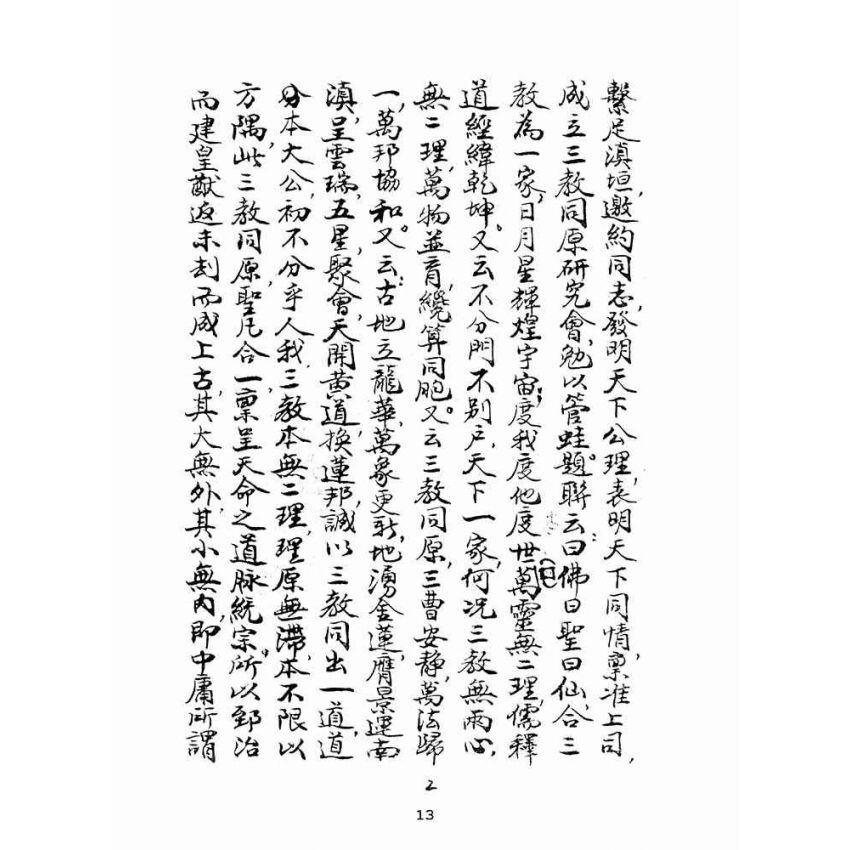 繫足滇垣,邀約同志,發明天下公理,表明天下同情,稟准上司,
成立三教同原研究會,勉以管蛙題。聯云:曰佛曰聖曰仙,合三
教為一家,日月星輝煌宇宙;度我度他度世,萬靈無二理,儒釋
道經緯乾坤。又云不分門不別戶,天下一家,何况三教無兩心,
無二理,萬物並育,纔算同胞。又云三教同原,三曹安靜,萬法歸
一,萬邦協和。又云:古地立龍華,萬象更新,地湧金蓮,膺景運南
滇,呈雲瑞,五星聚會,天開黃道,換蓮邦,誠以三教同出一道,道
本大公,初不分乎人我,三教本無二理,理原無滯,本不限以
方隅,此三教同原,聖凡合一,稟呈天命之道脉統宗。所以郅治
而建皇猷,返未刦而成上古,其大無外,其小無內,即中庸所謂
2
13